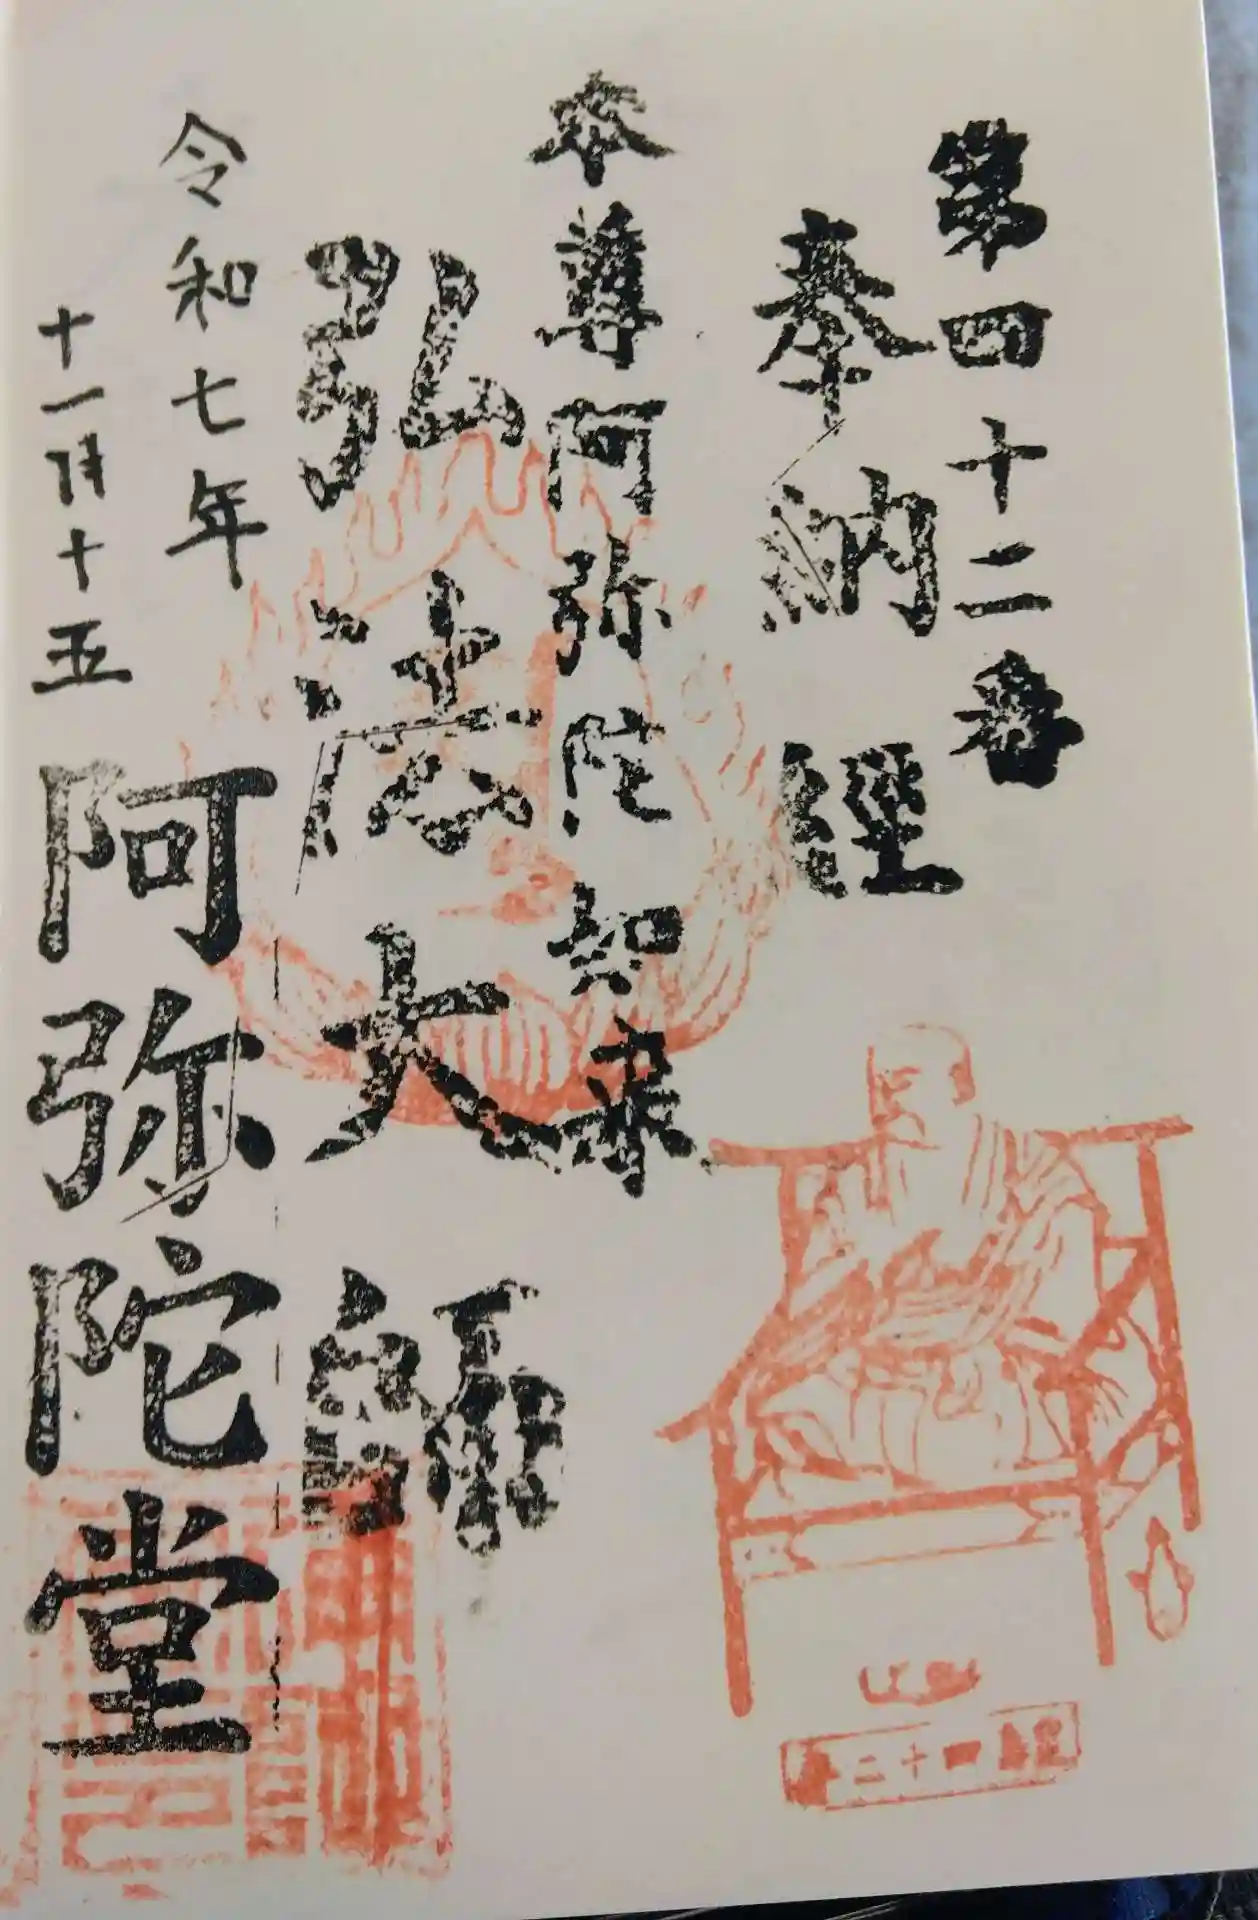 第四十二番
奉納經
本尊阿弥陀如来
弘法大師
令和七年
十一月十五
阿弥陀堂
第四十二番